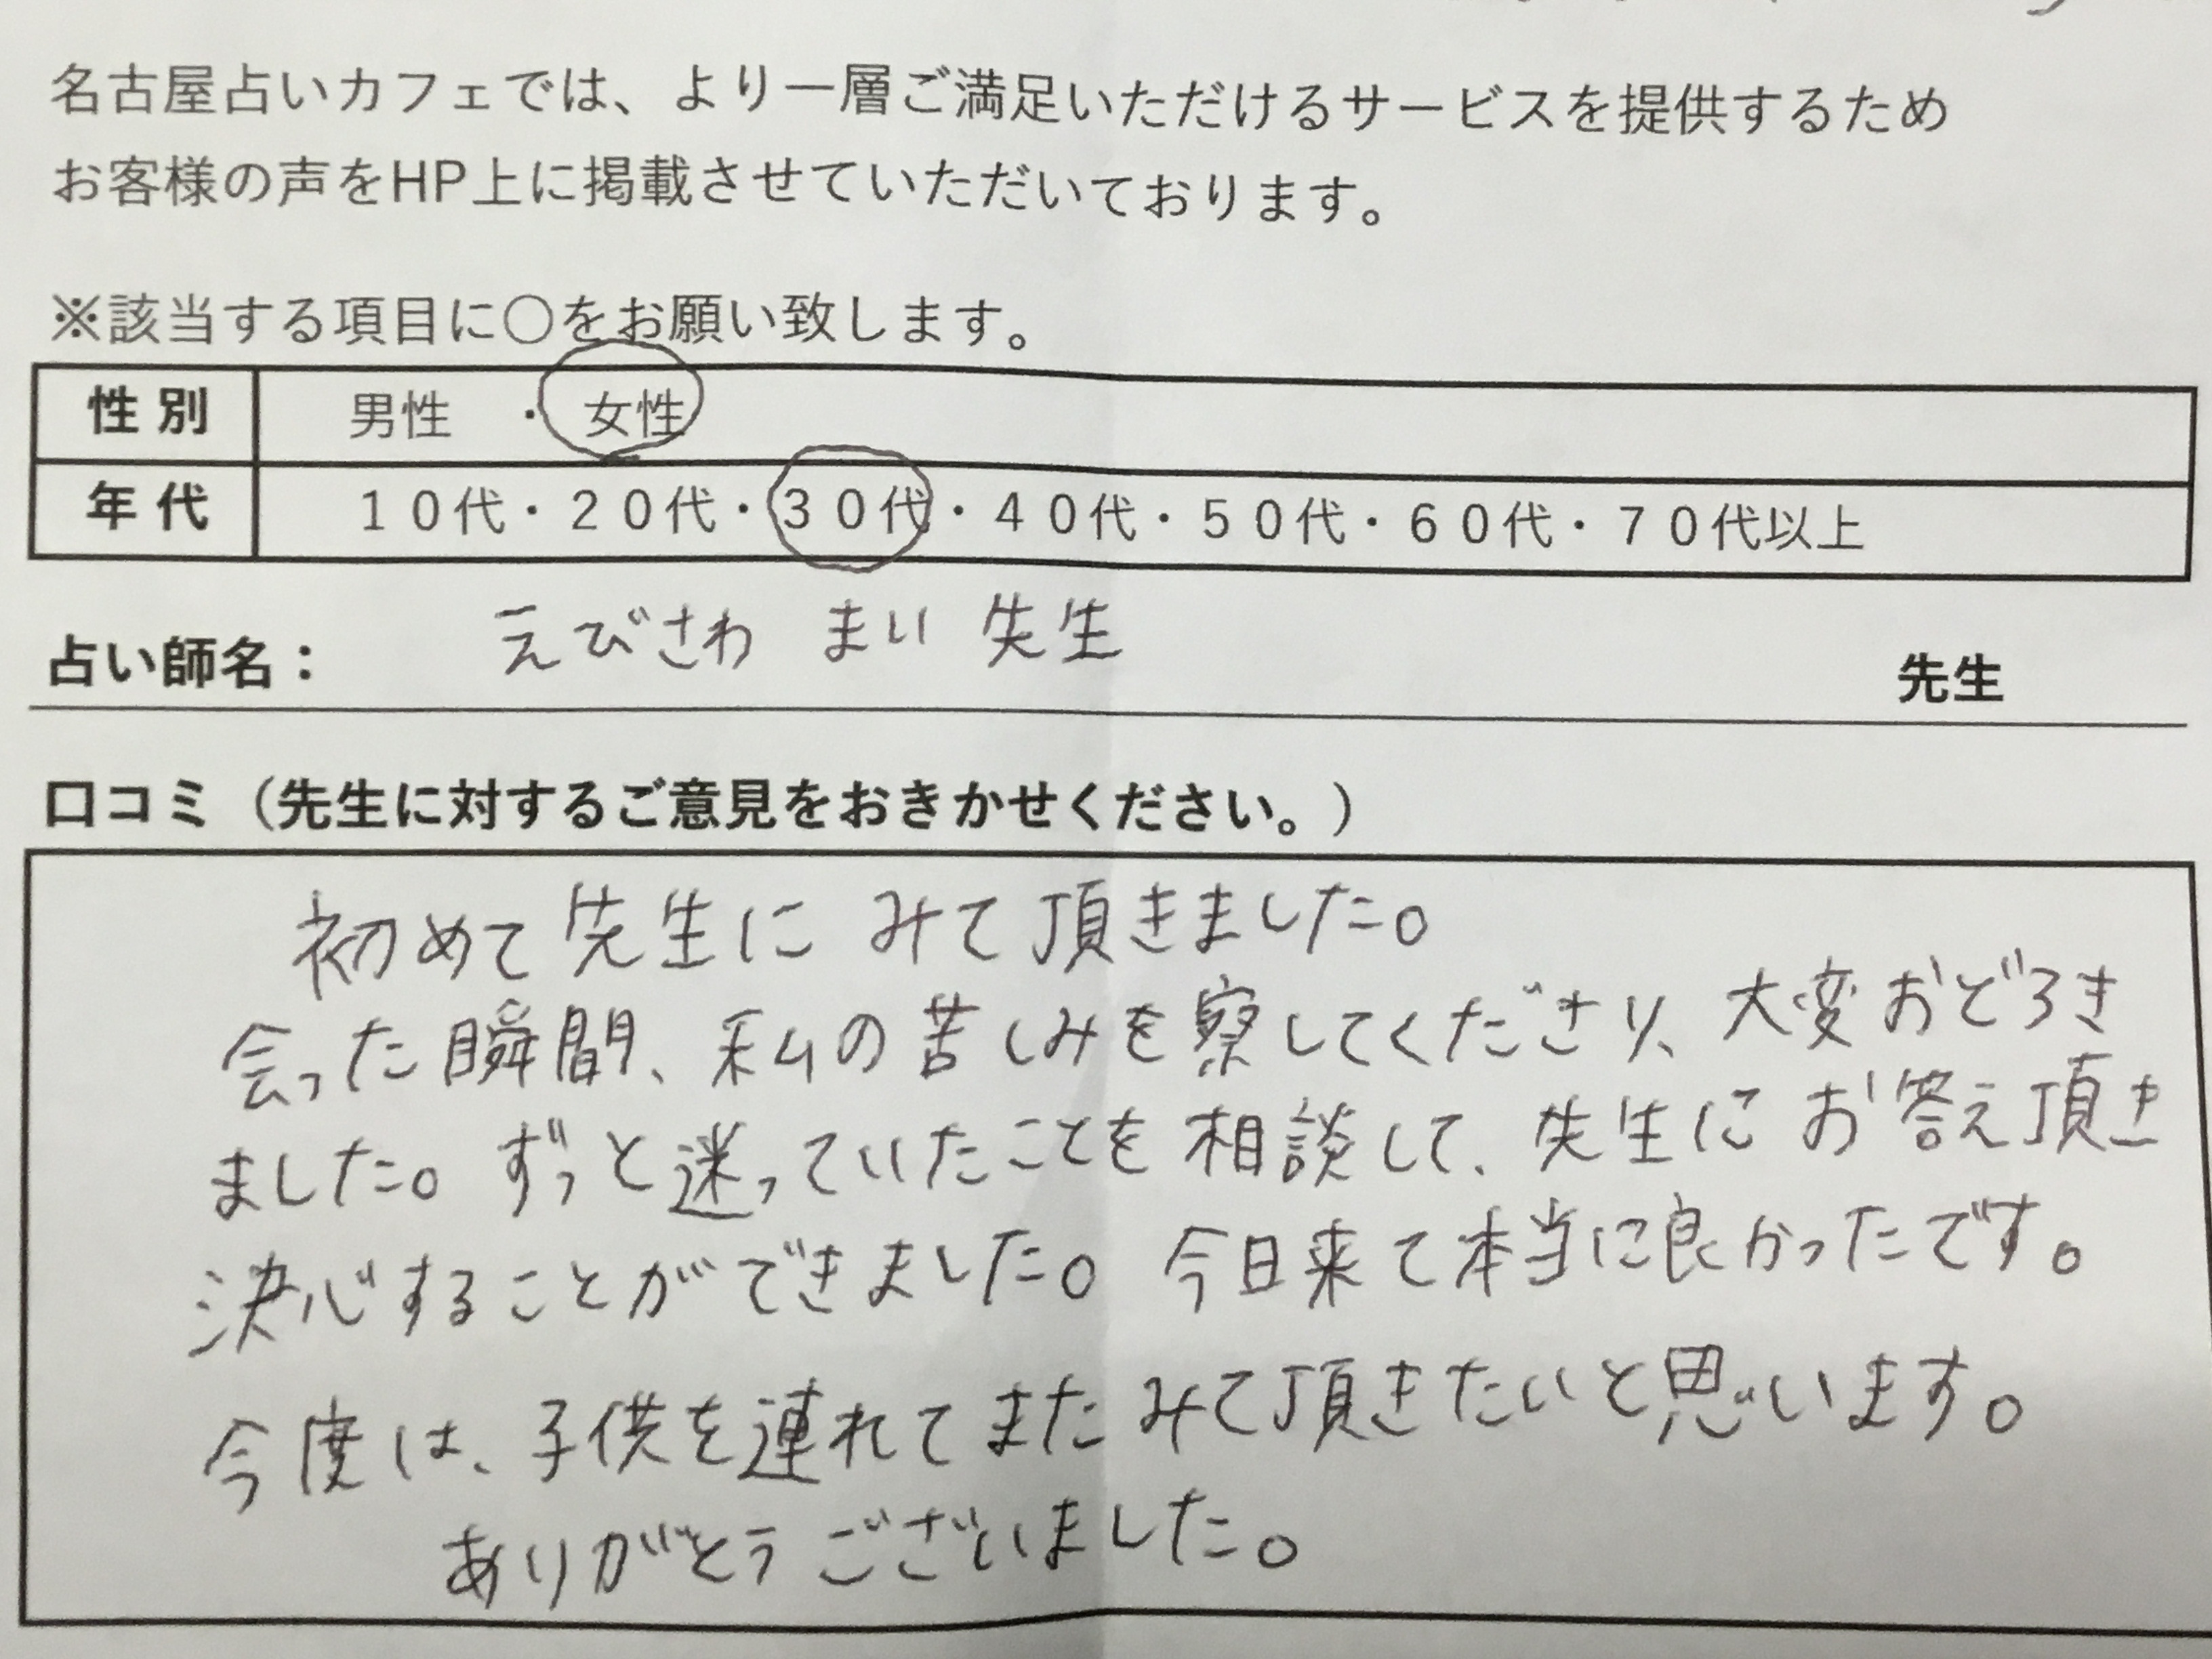 名古屋占いカフェでは、より一層ご満足いただけるサービスを提供するため
お客様の声をHP上に掲載させていただいております。
※該当する項目に〇をお願い致します。
性別 男性 ・ 女性
年代 10代・20代・30代・40代・50代・60代・70代以上
占い師名： えびさわ まい 先生 先生
口コミ（先生に対するご意見をおきかせください。）
初めて先生に みて頂きました。
会った瞬間、私の苦しみを察してくださり、大変おどろき
ました。ずっと迷っていたことを相談して、先生にお答え頂き
決心することができました。今日来て本当に良かったです。
今度は、子供を連れてまたみて頂きたいと思います。
ありがとうございました。